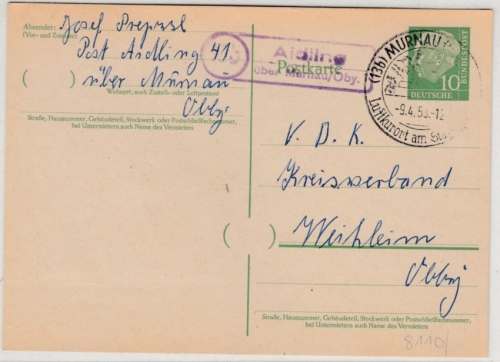 Absender: Josef
(Vor- und Zuname)
Post Aidling 41
über Murnau
Obby
Wohnort, auch Zustell- oder Leitpostamt
Straße, Hausnummer, Gebäudeteil, Stockwerk oder Postschließfachnummer,
bei Untermietern auch Name des Vermieters
Aidling
über Murnau/Oby.
Postkarte
(13b) MURNAU
-9.4.58.-12
Luftkurort am
10
DEUTSCHE
BUNDESPOST
V. d. K.
Kreisverband
Weilheim
Obby
Straße, Hausnummer, Gebäudeteil, Stockwerk oder Postschließfachnummer,
bei Untermietern auch Name des Vermieters
8110/